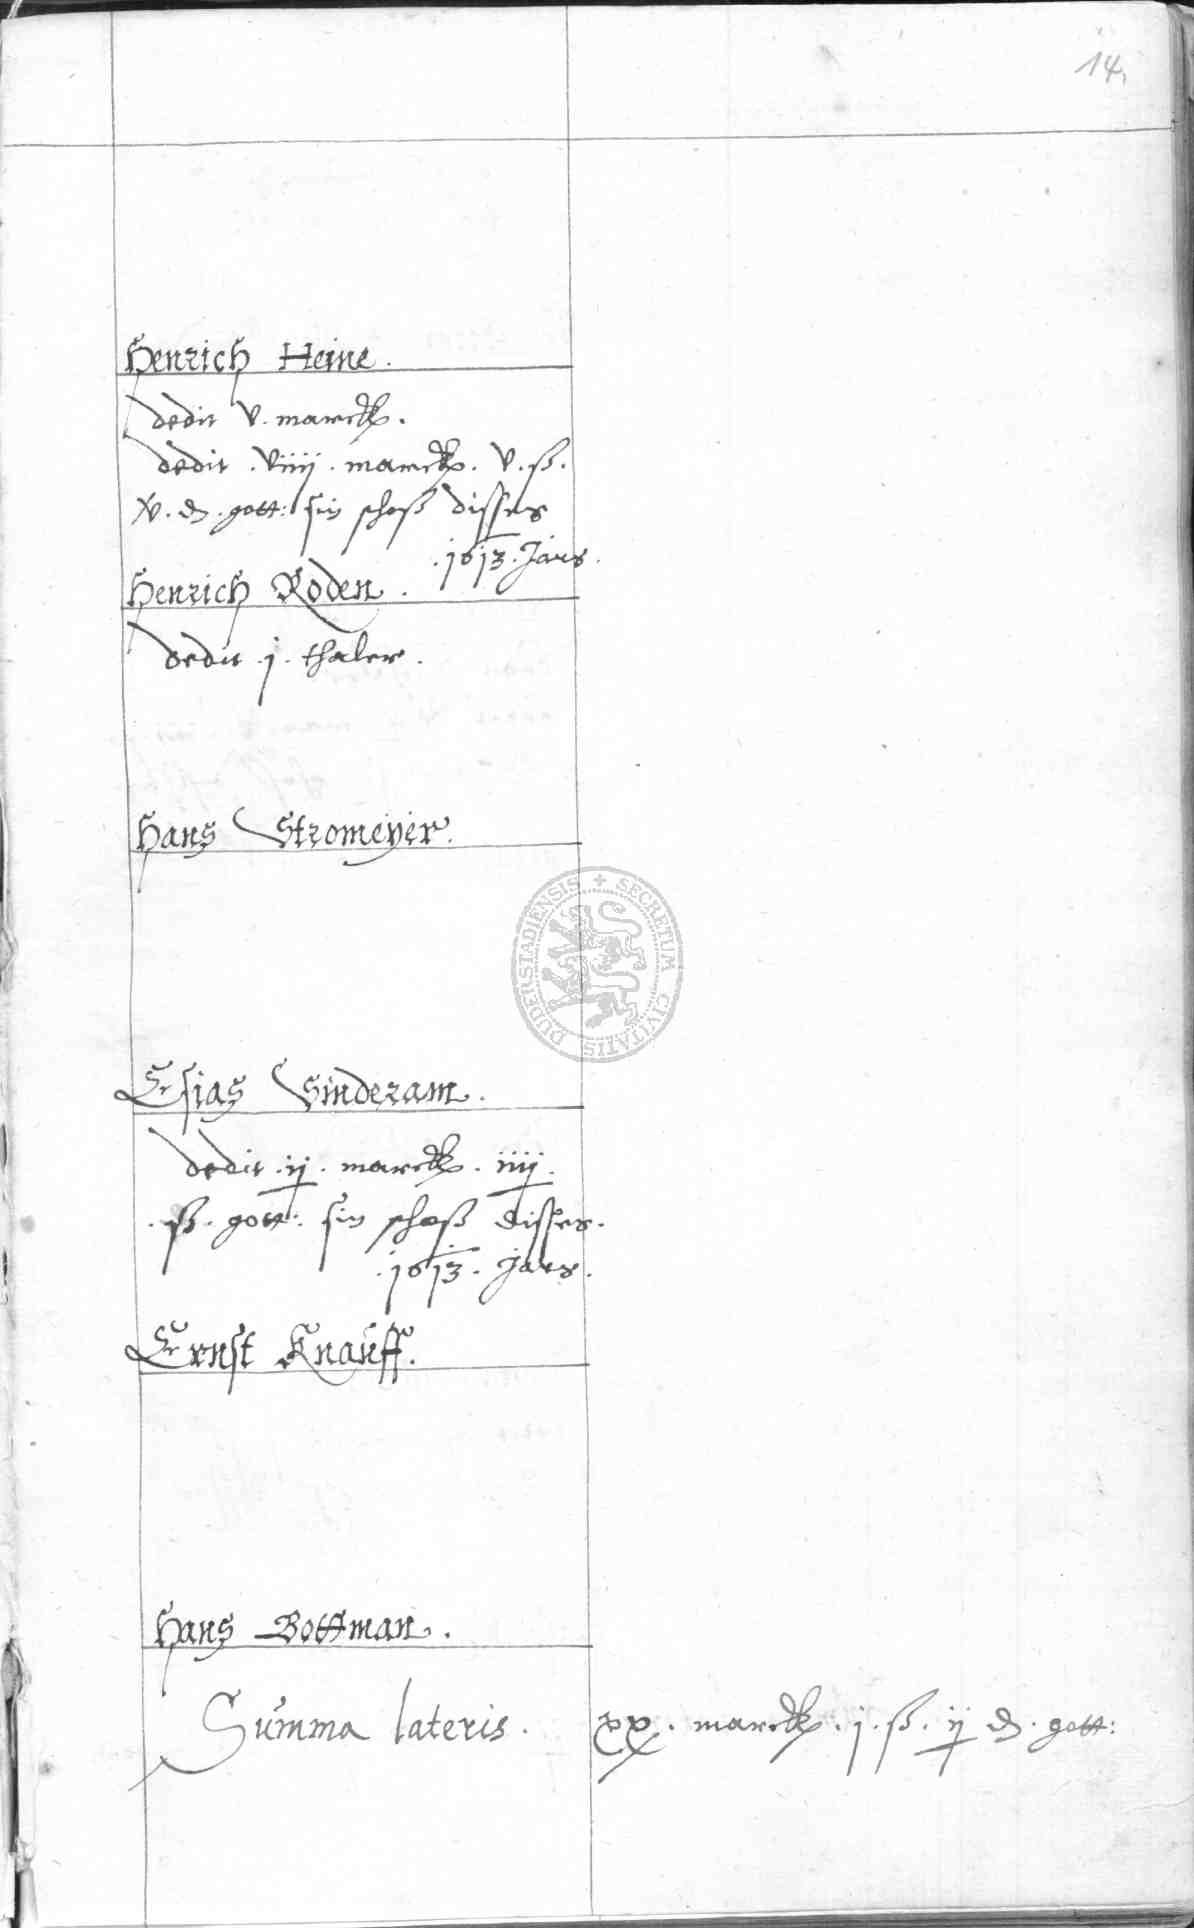 14.
Henrich Heine.
dedit v. marck.
dedit . viiij . marck . v . ß .
v . d . gott: sin schoß disses
. 1613 . Jars .
Henrich Roden .
dedit . j . thaler .
Hans Stromeyer.
Esias Sinderam .
dedit . ij . marck . iiij .
. ß . gott: sin schoß disses .
. 1613 . Jars .
Ernst Knauff.
Hans Bottman .
Summa lateris . xx . marck . j . ß . ij d . gott:
SECRETUM CIVITATIS DUDERSTADIENSIS